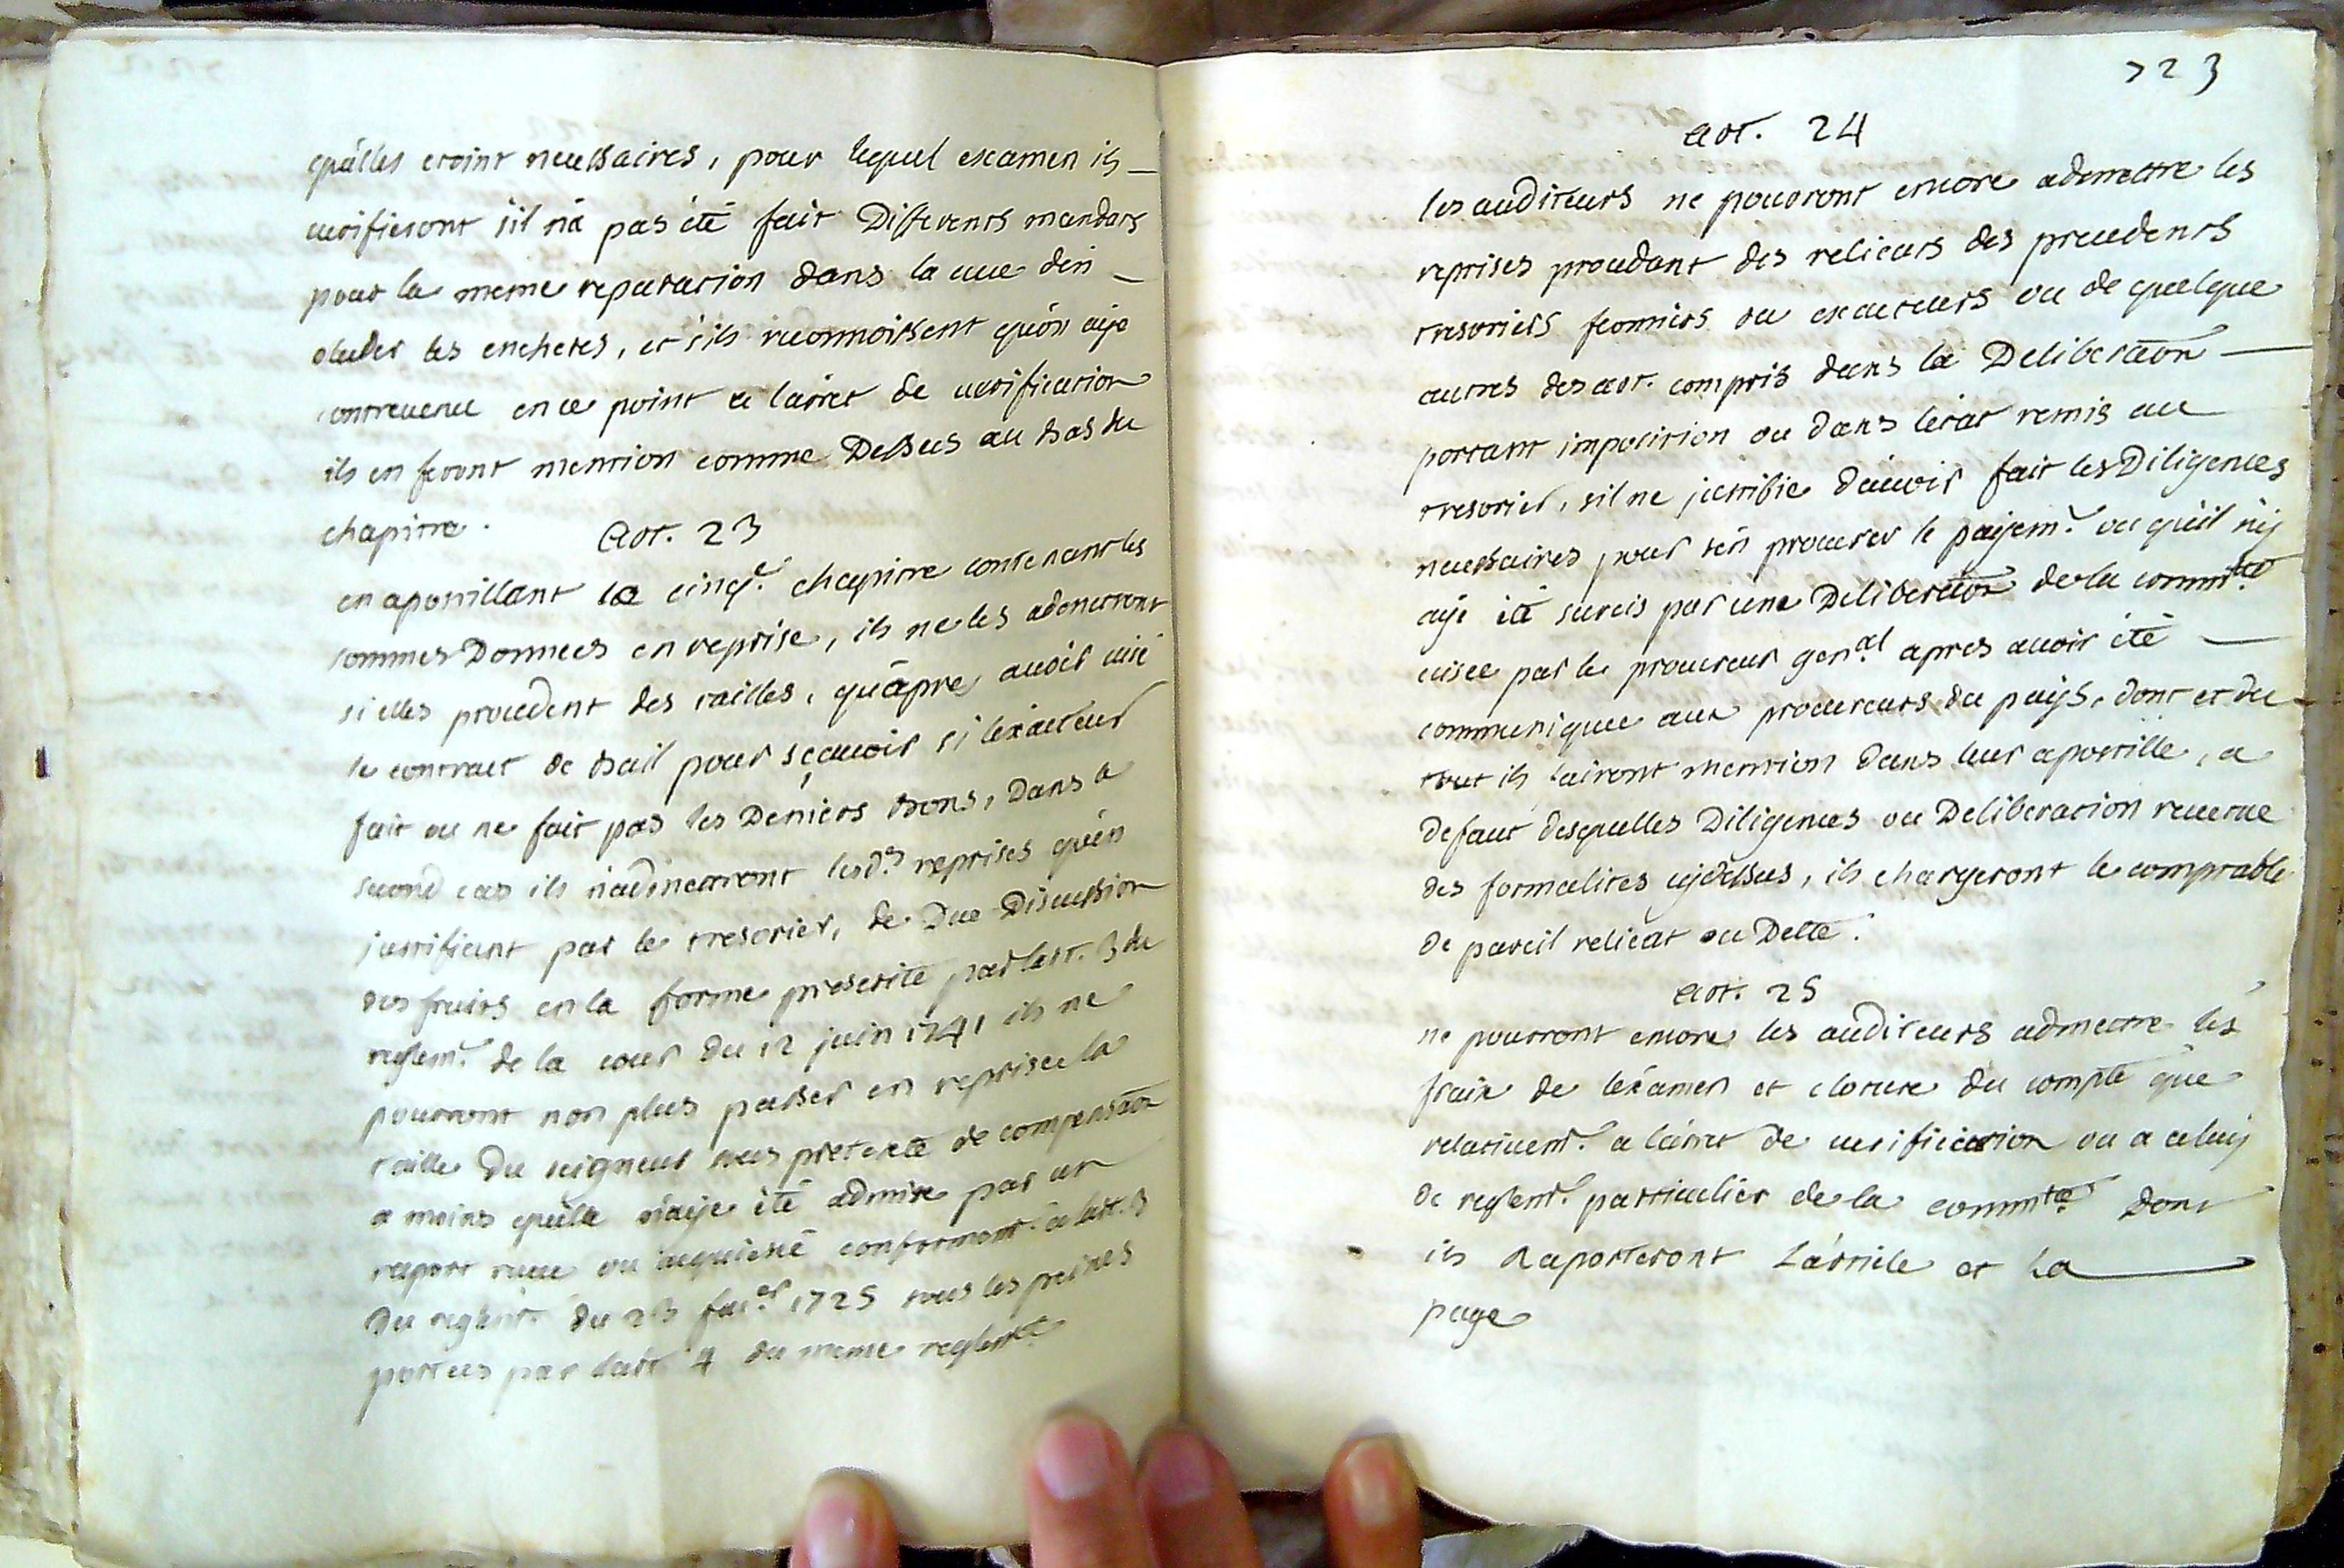 qu'elles etoint necessaires, pour lequel examen ils
verifieront s'il n'a pas été fait Differents mandats
pour la meme reparation dans la vue d'en
eluder les encheres, et s'ils reconnoissent qu'on aije
contrevenu en ce point a l'arret de verification
ils en feront mention comme Dessus au bas du
chapitre.
art. 23
en apostillant le cinq.e chapitre contenant les
sommes Données en reprise, ils ne les admettront
si elles procedent des tailles, qu'apres avoir visé
le contract de bail pour sçavoir si l'exacteur
fait ou ne fait pas les Deniers bons, Dans le
second cas ils n'admettront lesd.s reprises qu'en
justifiant par le tresorier, de Due Discussion
des fruits en la forme prescrite par l'art. 3 du
reglem.t de la cour du 12 juin 1741 ils ne
pourront non plus passer en reprise la
taille Du seigneur sous pretexte de compensaon
a moins qu'elle n'aije été admise par un
raport receu ou acquiessé conformem.t a l'art. 3
Du reglem.t du 23 1725 sous les peines
portées par l'art. 4 du meme reglem.t
723
art. 24
les auditeurs ne pourront encore admettre les
reprises procedant des relicats des precedents
tresoriers fermiers ou exacteurs ou de quelque
autres des art. compris dans la Deliberaon
portant imposition ou dans l'etat remis au
tresorier, s'il ne justifie d'avoir fait les Diligences
necessaires pour s'en procurer le payem.t ou qu'il n'ij
aije été surcis par une Deliberaon de la comm.té
visée par le procureur gen.al apres avoir été
communiquée aux procureurs du païs, dont et du
tout ils fairont mention Dans leur apostille, a
defaut desquelles Diligences ou Deliberation revetue
des formalités cydessus, ils chargeront le comptable
de pareil relicat ou Dette.
art. 25
ne pourront encore les auditeurs admettre les
fraix de l'examen et cloture du compte que
relativem.t a l'arret de verification ou a celuy
de reglem.t particulier de la comm.té Dont
ils Raporteront L'article et La
page